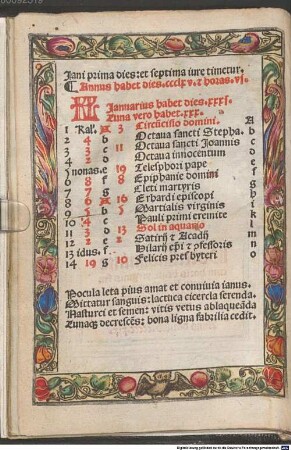 Jani prima dies: et septima iure timetur.
Annus habet dies .ccclxv. et horas .vj.
KL Januarius habet dies .xxxj.
Luna vero habet .xxx.
1 Kal. A 3 Circūcisio domini. A
2 4 b Octaua sancti Stepha. b
3 3 c 11 Octaua sancti Joannis c
4 2 d Octaua innocentum d
5 nonas. e 19 Telesphori pape e
6 8 f 8 Epiphanie domini f
7 7 g Cleti martyris g
8 6 A 16 Erhardi episcopi h
9 5 b 5 Martialis virginis i
10 4 c Pauli primi eremite k
11 3 d 13 Sol in aquario l
12 2 e 2 Satirij et Acadij m
13 idus. f Hilarij epi et ꝯfessoris n
14 19 g 10 Felicis presbyteri o
Pocula leta pius amat et conuiuia ianus.
Mittatur sanguis: lactuca cicercla serenda.
Nasturci et semen: vitis vetus ablaqueāda
Lunaqȝ decrescēs: bona ligna fabrilia cedit.